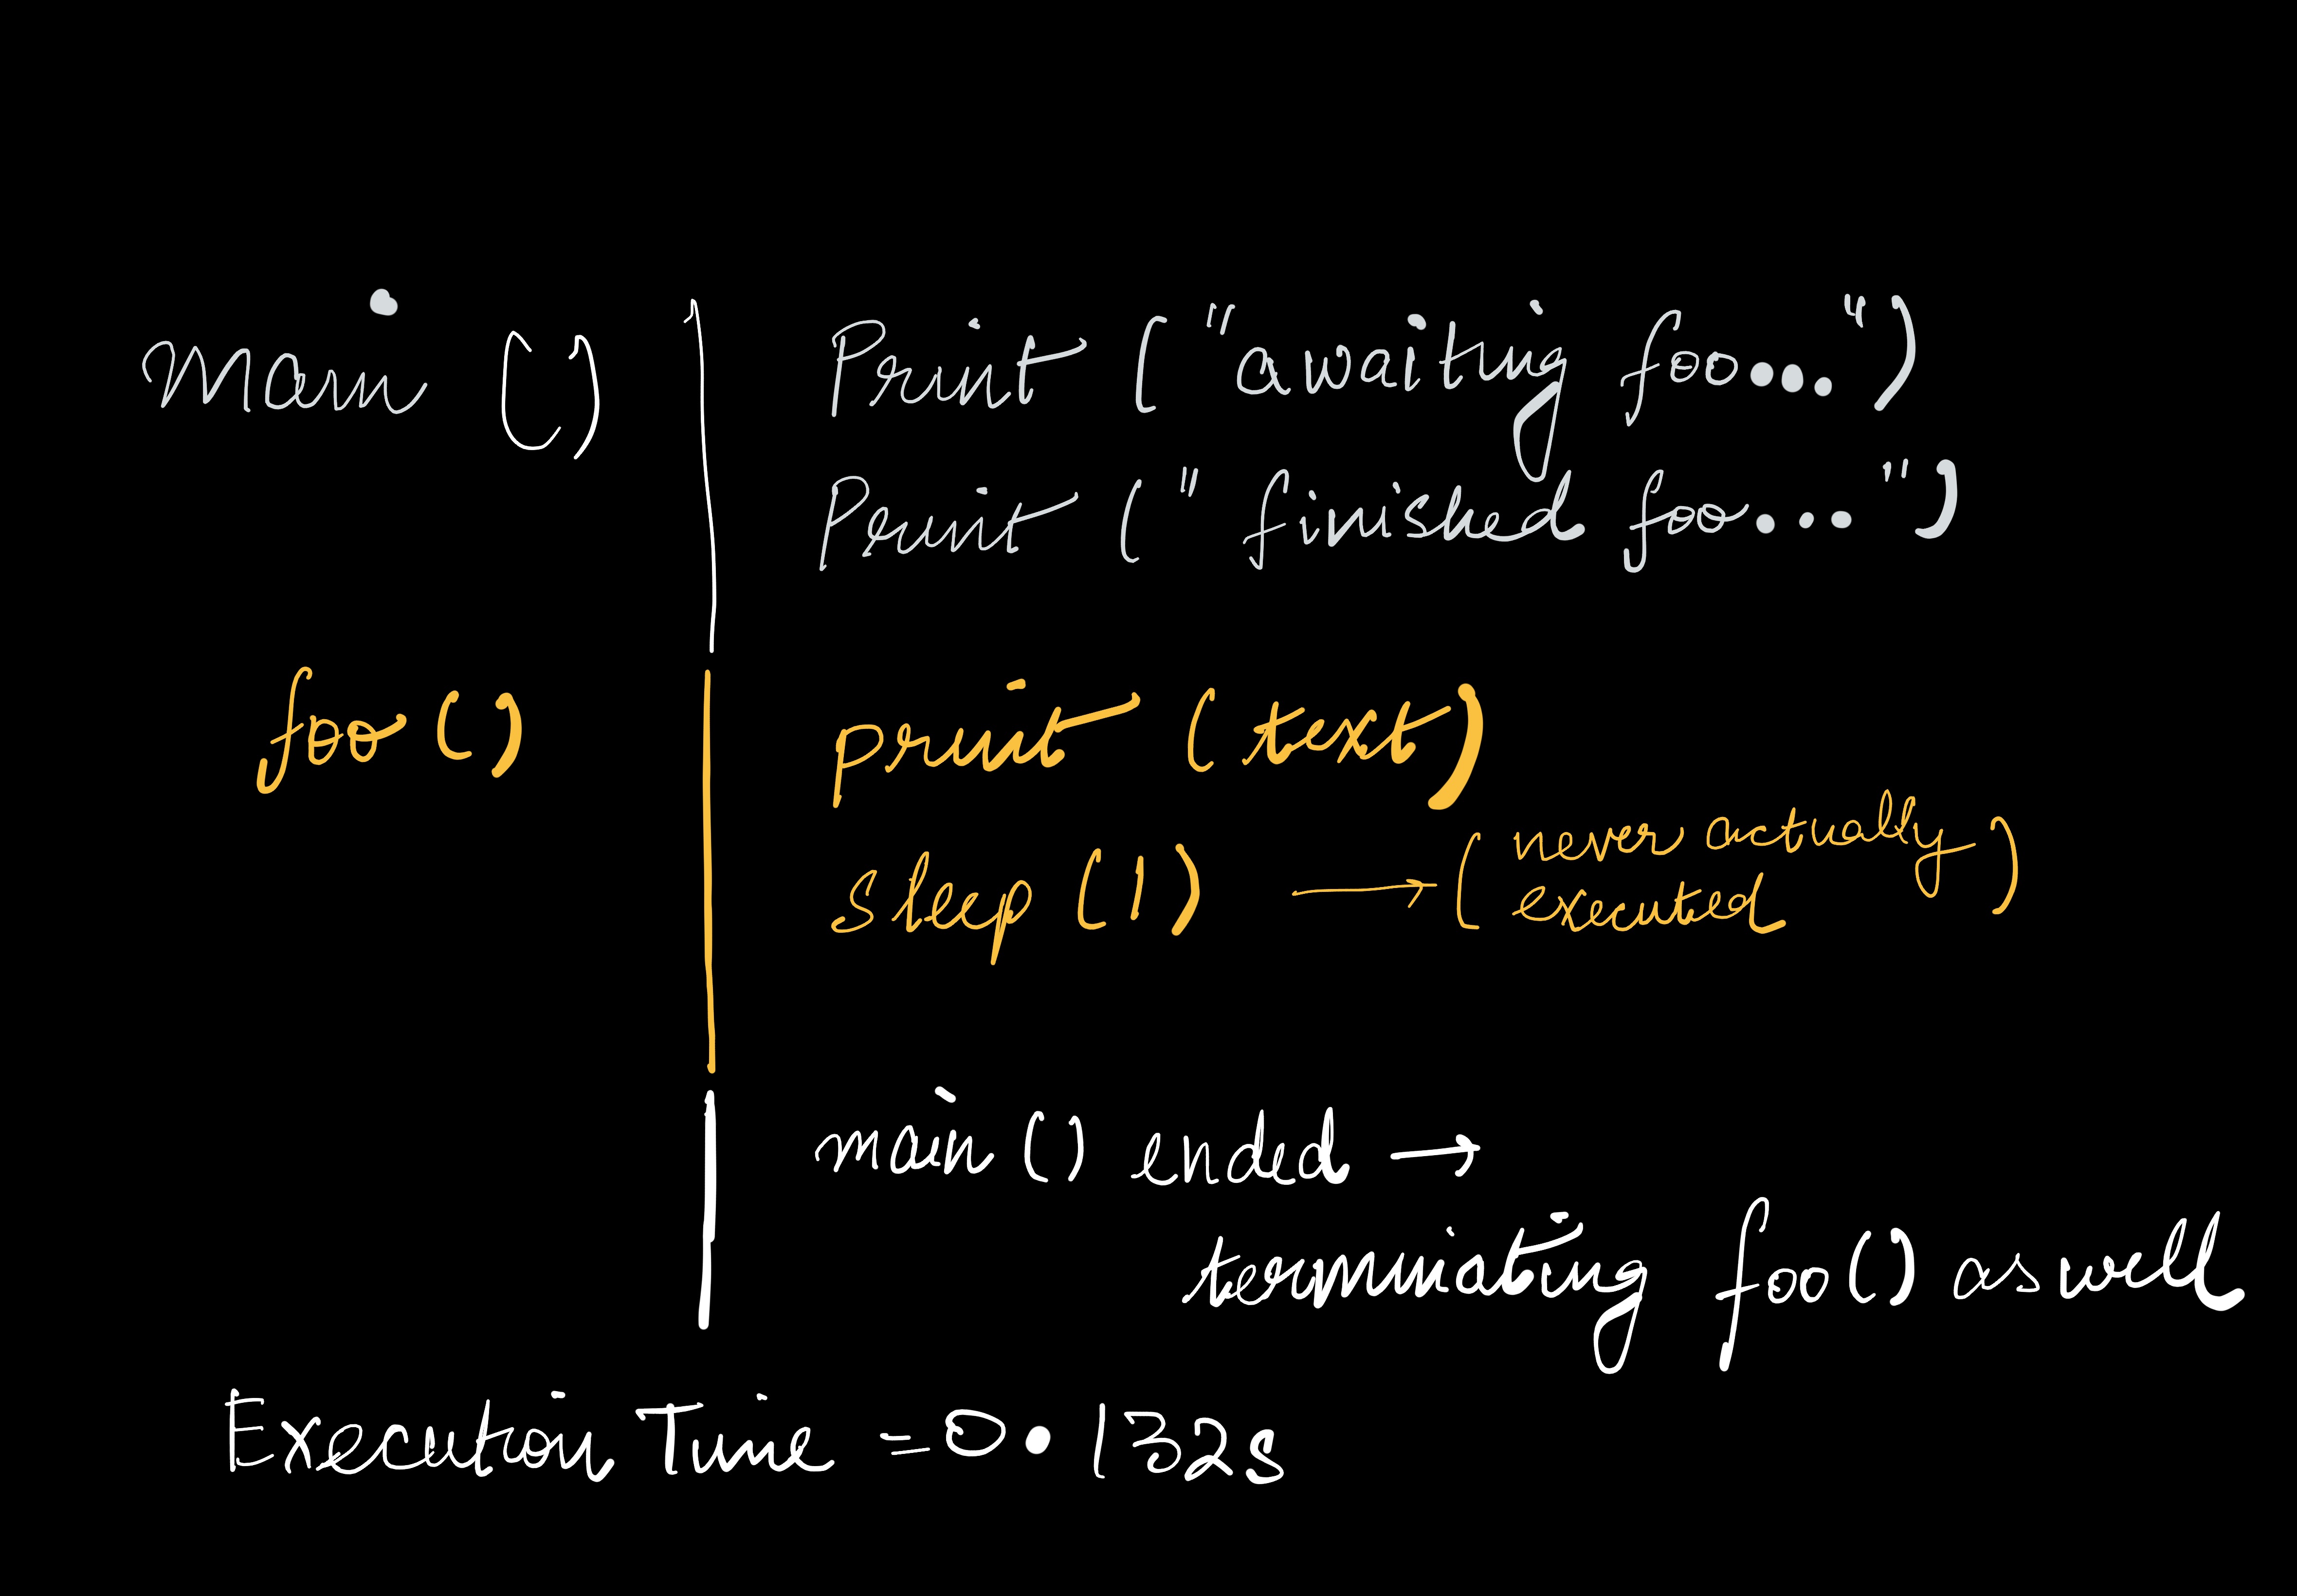 main () Print ("awaiting foo...")
Print ("finished foo...")
foo () print (text)
sleep (1) → (never actually
executed)
main () ended →
terminating foo () as well
Execution Time = 0.132s